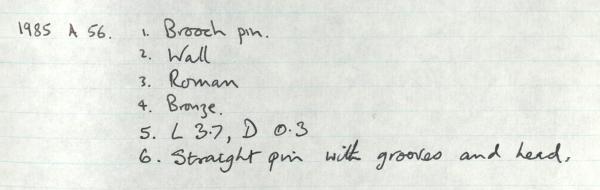 1985 A 56. 1. Brooch pin.
2. Wall
3. Roman
4. Bronze.
5. L 3.7, D 0.3
6. Straight pin with grooves and head.